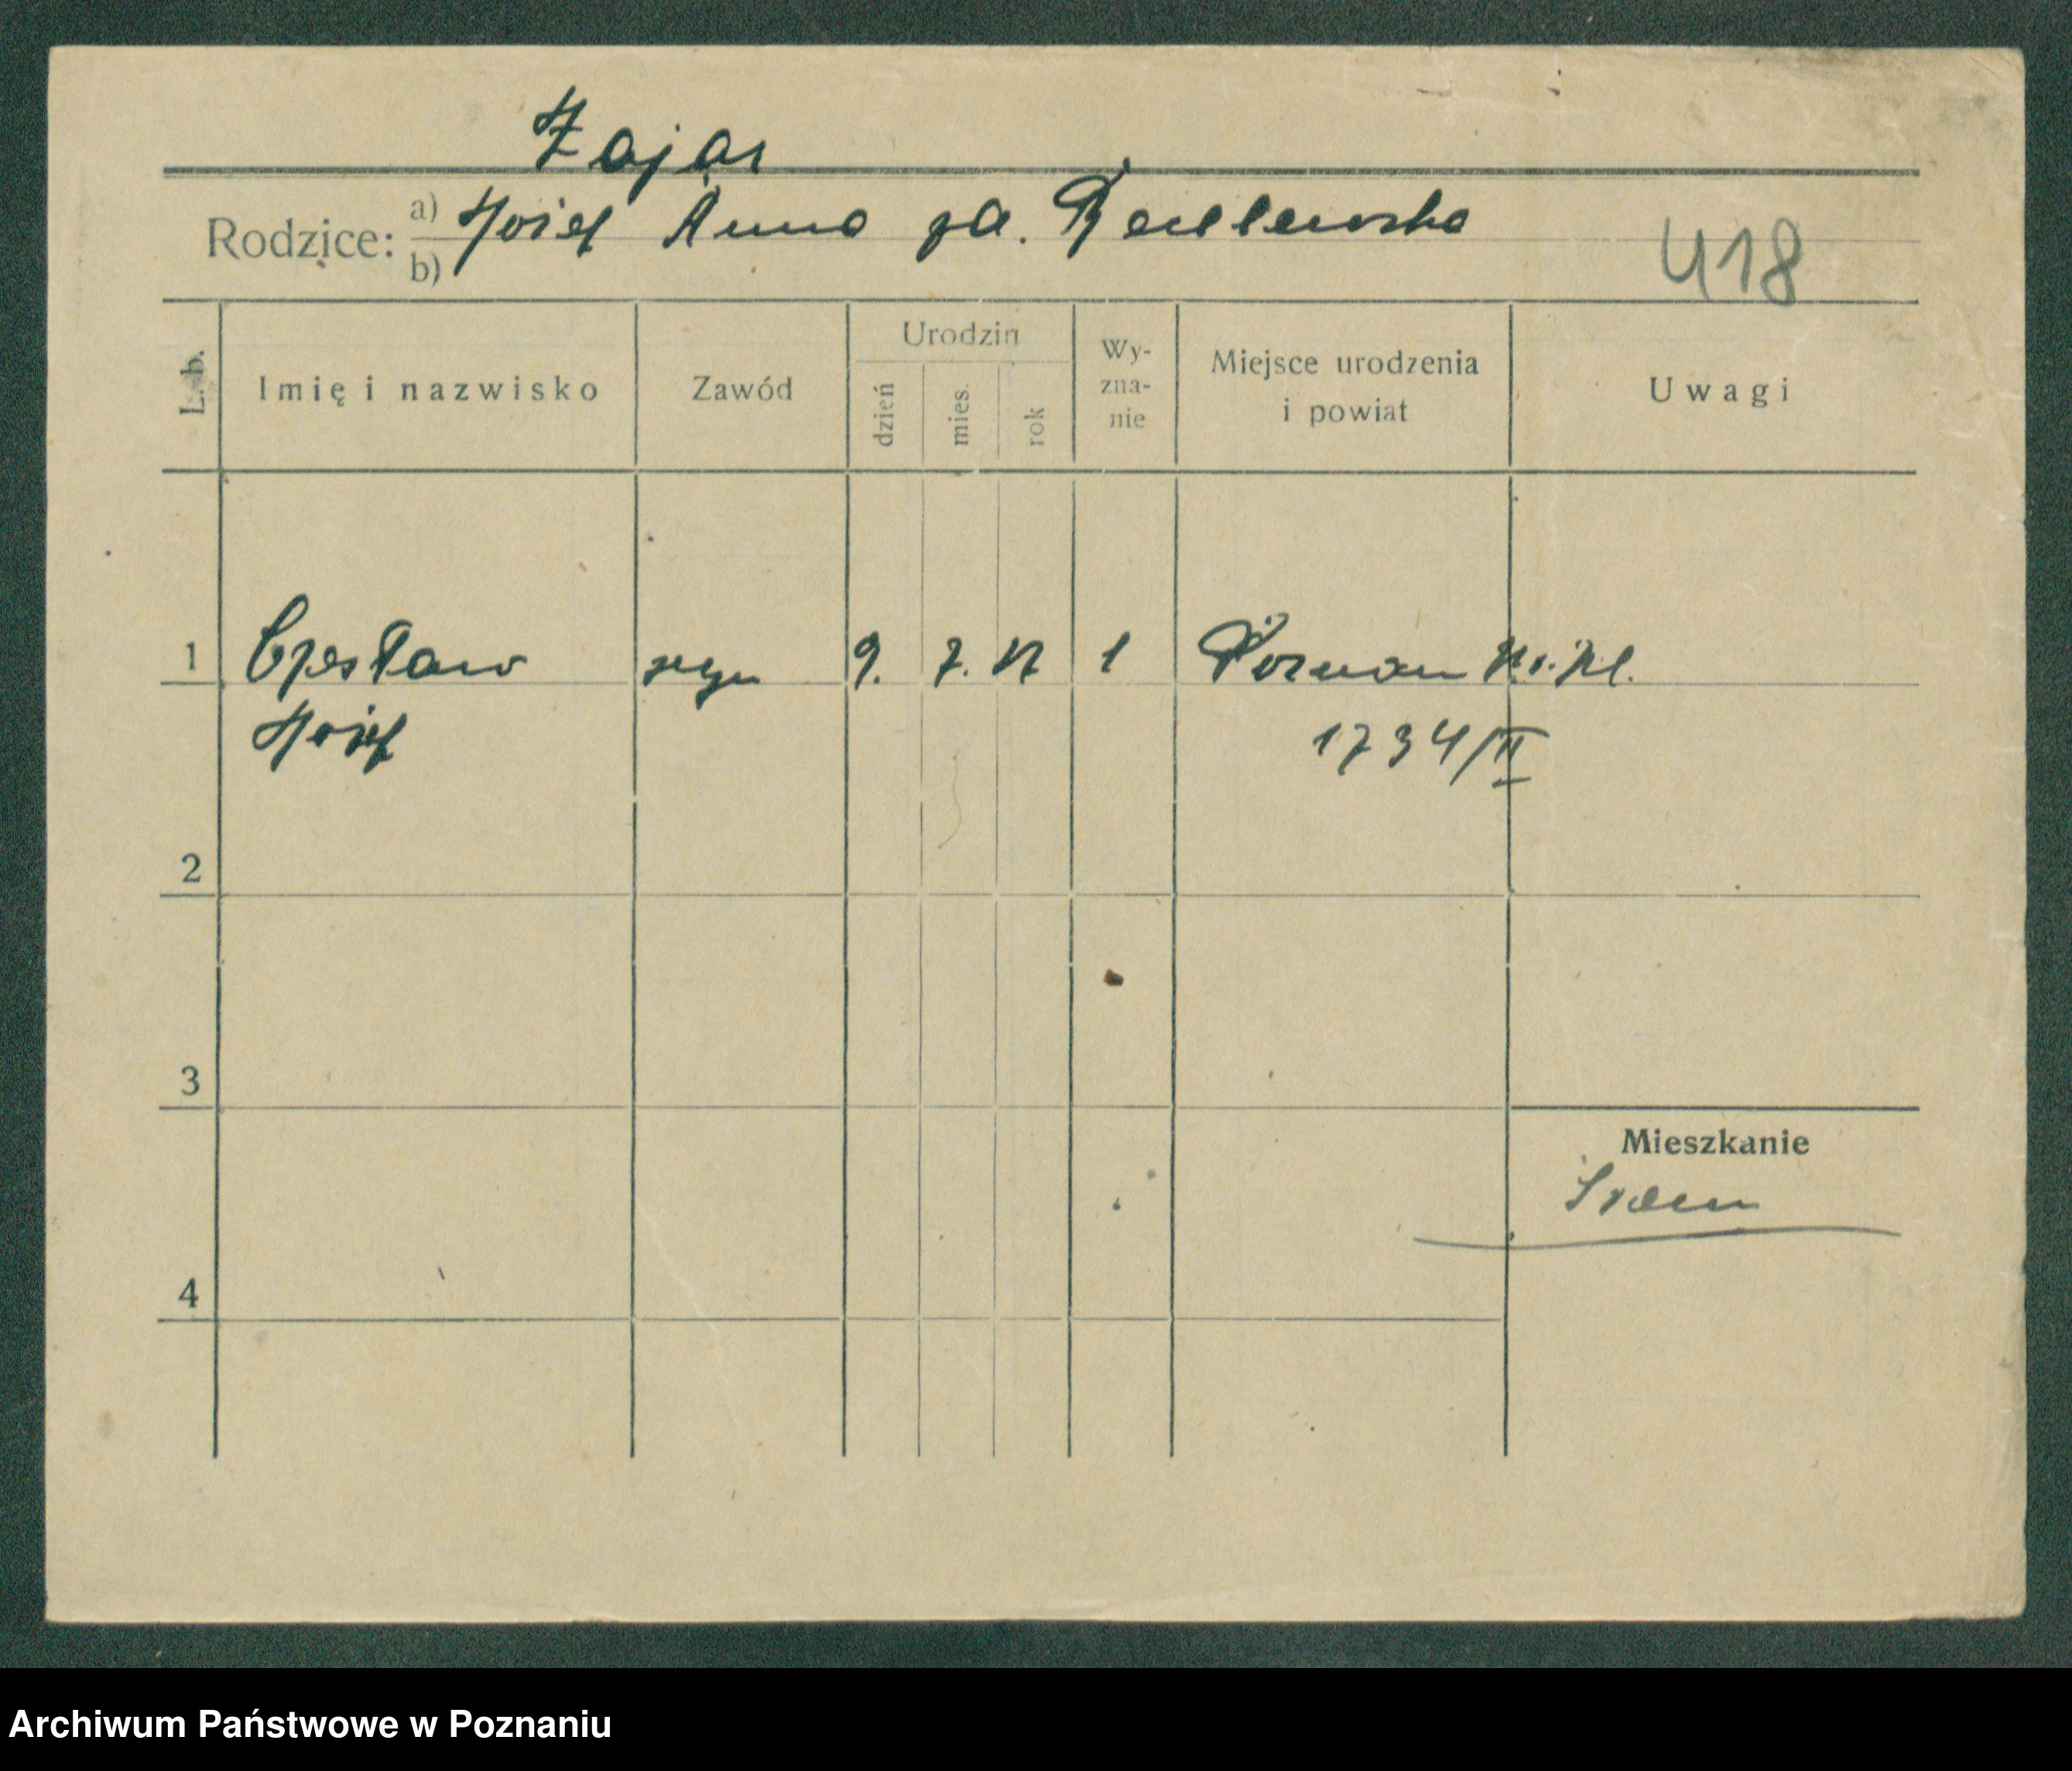 Zając
Rodzice: a) Józef Anna zd. Redlewska
b)
418
L. b. Imię i nazwisko Zawód Urodzin dzień mies. rok Wy-zna-nie Miejsce urodzenia i powiat Uwagi
1 Czesław syn 9. 7. 17 1 Poznan
Józef 1734/II
2
3
Mieszkanie
Srem
4
Archiwum Państwowe w Poznaniu